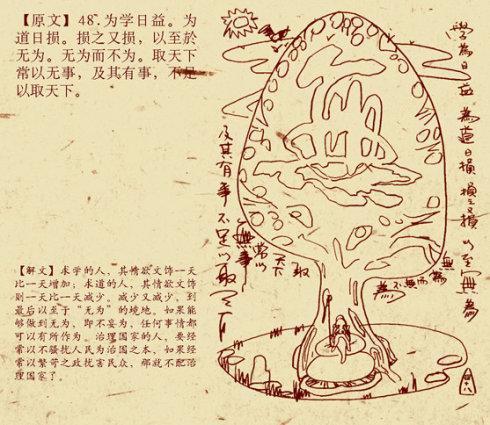 【原文】48".为学日益。为
道日损。损之又损，以至於
无为。无为而不为。取天下
常以无事，及其有事，不足
以取天下。
【解文】求学的人，其情欲文饰一天
比一天增加；求道的人，其情欲文饰
则一天比一天减少。减少又减少，到
最后以至于“无为”的境地。如果能
够做到无为，即不妄为，任何事情都
可以有所作为。治理国家的人，要经
常以不骚扰人民为治国之本，如果经
常以繁苛之政扰害民众，那就不配治
理国家了。
學為日益為道日損損之又損以至無為
無為而不為
取天下常以無事
及其有事不足以取天下
四十八